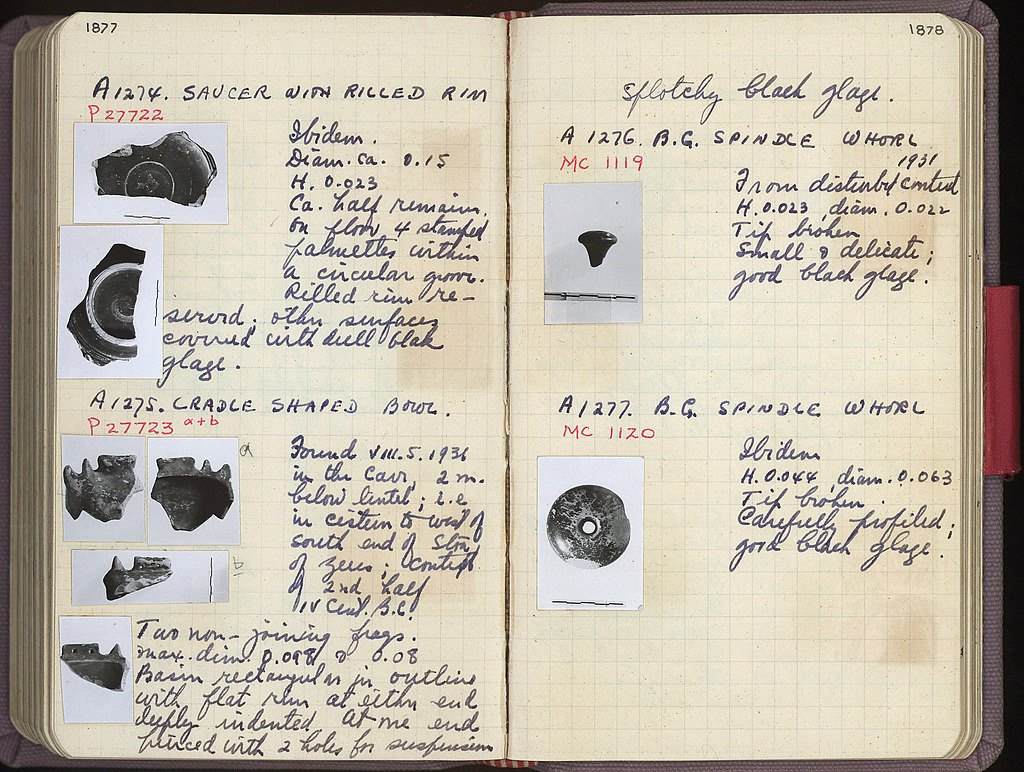 1877
A 1274. SAUCER WITH RILLED RIM
P 27722
Ibidem.
Diam. ca. 0.15
H. 0.023
Ca. half remains.
On floor 4 stamped
palmettes within
a circular groove.
Rilled rim re-
served. other surfaces
covered with dull black
glaze.
A 1275. CRADLE SHAPED BOWL.
P 27723 a+b
a
Found VIII.5.1936
in the cave, 2 m.
below lintel; i.e
in cistern to west of
south end of Stoa
of Zeus; context
of 2nd half
IV Cent. B.C.
b
Two non-joining frags.
max. dim. 0.098 & 0.08
Basin rectangular in outline
with flat rim at either end
deeply indented. At one end
pierced with 2 holes for suspension
1878
splotchy black glaze.
A 1276. B.G. SPINDLE WHORL
MC 1119
1931
From disturbed context
H. 0.023, diam. 0.022
Tip broken
Small & delicate;
good black glaze.
A 1277. B.G. SPINDLE WHORL
MC 1120
Ibidem
H. 0.044, diam. 0.063
Tip broken.
Carefully profiled;
good black glaze.